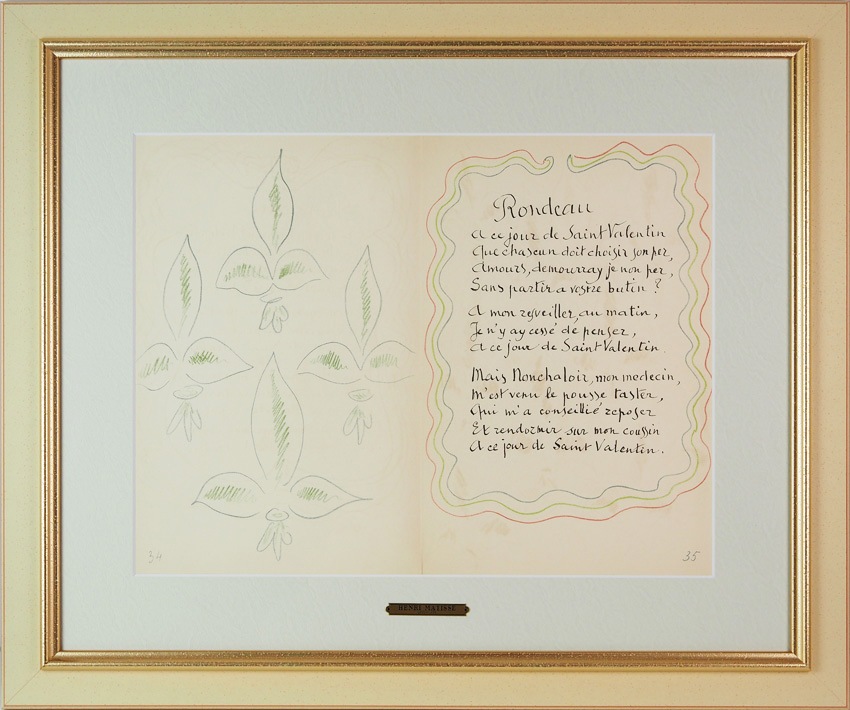 Rondeau
A ce jour de Saint Valentin
Que chascun doit choisir son per,
Amours, demourray je non per,
Sans partir a vostre butin ?
A mon resveiller, au matin,
Je n'y ay cessé de penser,
A ce jour de Saint Valentin.
Mais Nonchaloir, mon medecin,
M'est venu le pousse taster,
Qui m'a conseillié reposer
Et rendormir sur mon coussin
A ce jour de Saint Valentin.
34
35
HENRI MATISSE